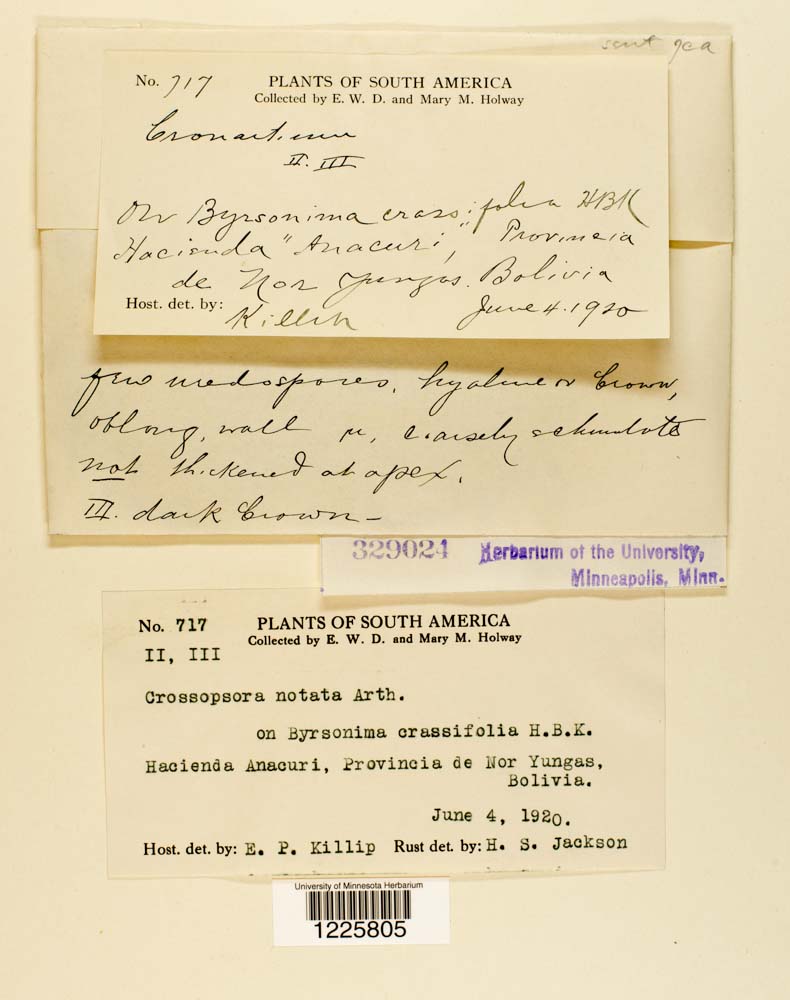 sent
No. 717 PLANTS OF SOUTH AMERICA
Collected by E. W. D. and Mary M. Holway
Cronartium
II. III
On Byrsonima crassifolia HBK
Hacienda "Anacuri," Provincia
de Nor Yungas. Bolivia
Host. det. by: Killip June 4. 1920
few uredospores, hyaline or brown,
oblong, wall µ, coarsely echinulate
not thickened at apex.
III. dark brown -
329024 Herbarium of the University,
Minneapolis, Minn.
No. 717 PLANTS OF SOUTH AMERICA
Collected by E. W. D. and Mary M. Holway
II, III
Crossopsora notata Arth.
on Byrsonima crassifolia H.B.K.
Hacienda Anacuri, Provincia de Nor Yungas,
Bolivia.
June 4, 1920.
Host. det. by: E. P. Killip Rust det. by: H. S. Jackson
University of Minnesota Herbarium
1225805